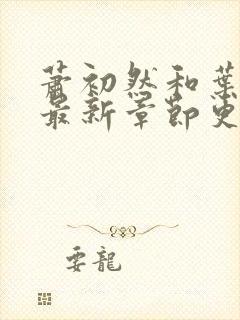 萧初然和葉
最新章節更
要龍